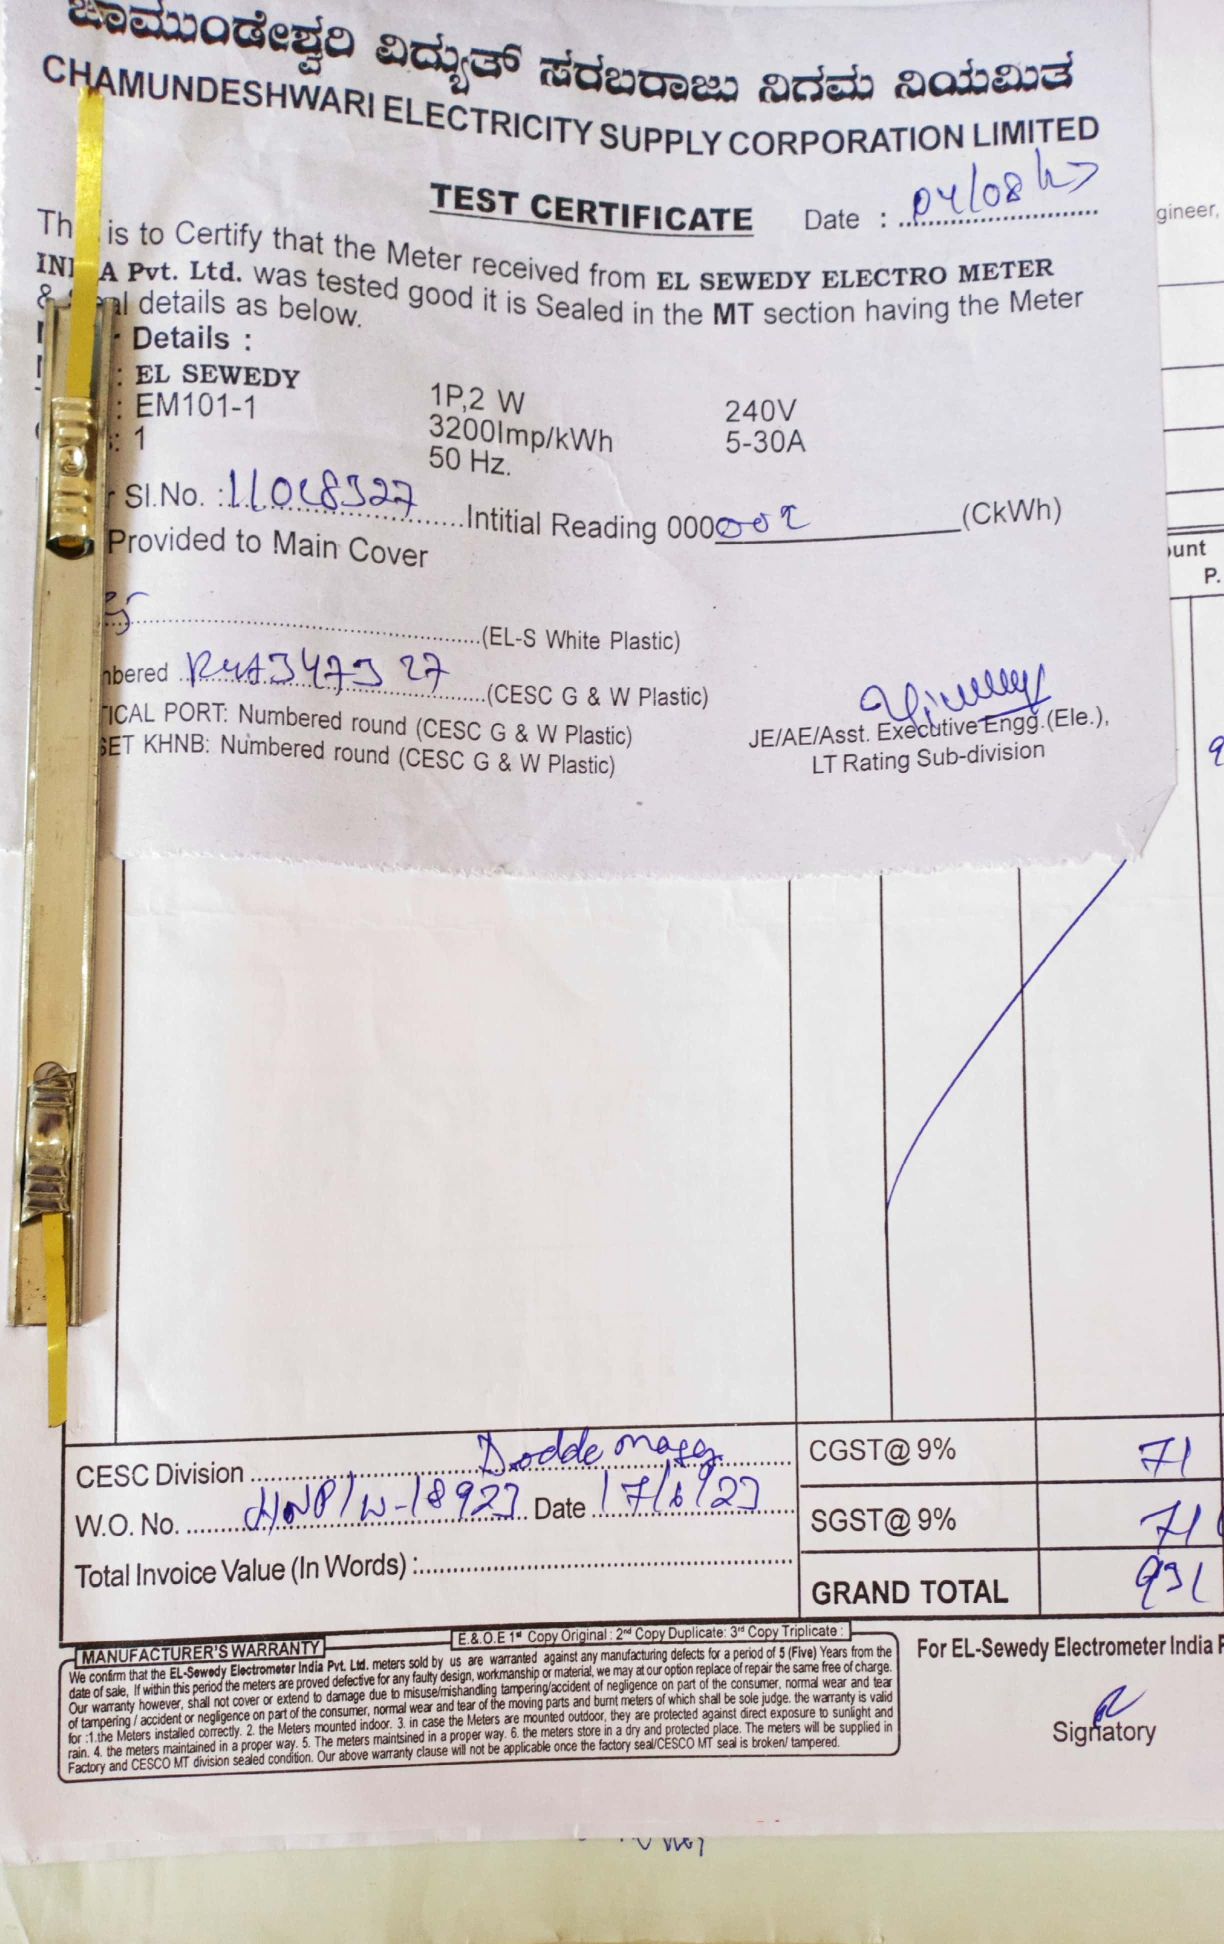 ಚಾಮುಂಡೇಶ್ವರಿ ವಿದ್ಯುತ್ ಸರಬರಾಜು ನಿಗಮ ನಿಯಮಿತ
CHAMUNDESHWARI ELECTRICITY SUPPLY CORPORATION LIMITED
TEST CERTIFICATE Date :
is to Certify that the Meter received from EL SEWEDY ELECTRO METER
Pvt. Ltd. was tested good it is Sealed in the MT section having the Meter
& details as below.
Details :
: EL SEWEDY
: EM101-1 1P,2 W 240V
: 1 3200Imp/kWh 5-30A
50 Hz.
Sl.No. : Intitial Reading 000 (CkWh)
Provided to Main Cover
(EL-S White Plastic)
(CESC G & W Plastic)
PORT: Numbered round (CESC G & W Plastic)
KHNB: Numbered round (CESC G & W Plastic)
JE/AE/Asst. Executive Engg.(Ele.),
LT Rating Sub-division
gineer,
P.
CESC Division CGST@ 9% 71
W.O. No. Date 17/6/23 SGST@ 9% 71
Total Invoice Value (In Words) : GRAND TOTAL 931
E.& O.E 1st Copy Original : 2nd Copy Duplicate: 3rd Copy Triplicate :
MANUFACTURER'S WARRANTY
We confirm that the EL-Sewedy Electrometer India Pvt. Ltd. meters sold by us are warranted against any manufacturing defects for a period of 5 (Five) Years from the
date of sale, If within this period the meters are proved defective for any faulty design, workmanship or material, we may at our option replace of repair the same free of charge.
Our warranty however, shall not cover or extend to damage due to misuse/mishandling tampering/accident of negligence on part of the consumer, normal wear and tear
of tampering / accident or negligence on part of the consumer, normal wear and tear of the moving parts and burnt meters of which shall be sole judge. the warranty is valid
for :1.the Meters installed correctly. 2. the Meters mounted indoor. 3. in case the Meters are mounted outdoor, they are protected against direct exposure to sunlight and
rain. 4. the meters maintained in a proper way. 5. The meters maintsined in a proper way. 6. the meters store in a dry and protected place. The meters will be supplied in
Factory and CESCO MT division sealed condition. Our above warranty clause will not be applicable once the factory seal/CESCO MT seal is broken/ tampered.
For EL-Sewedy Electrometer India
Signatory